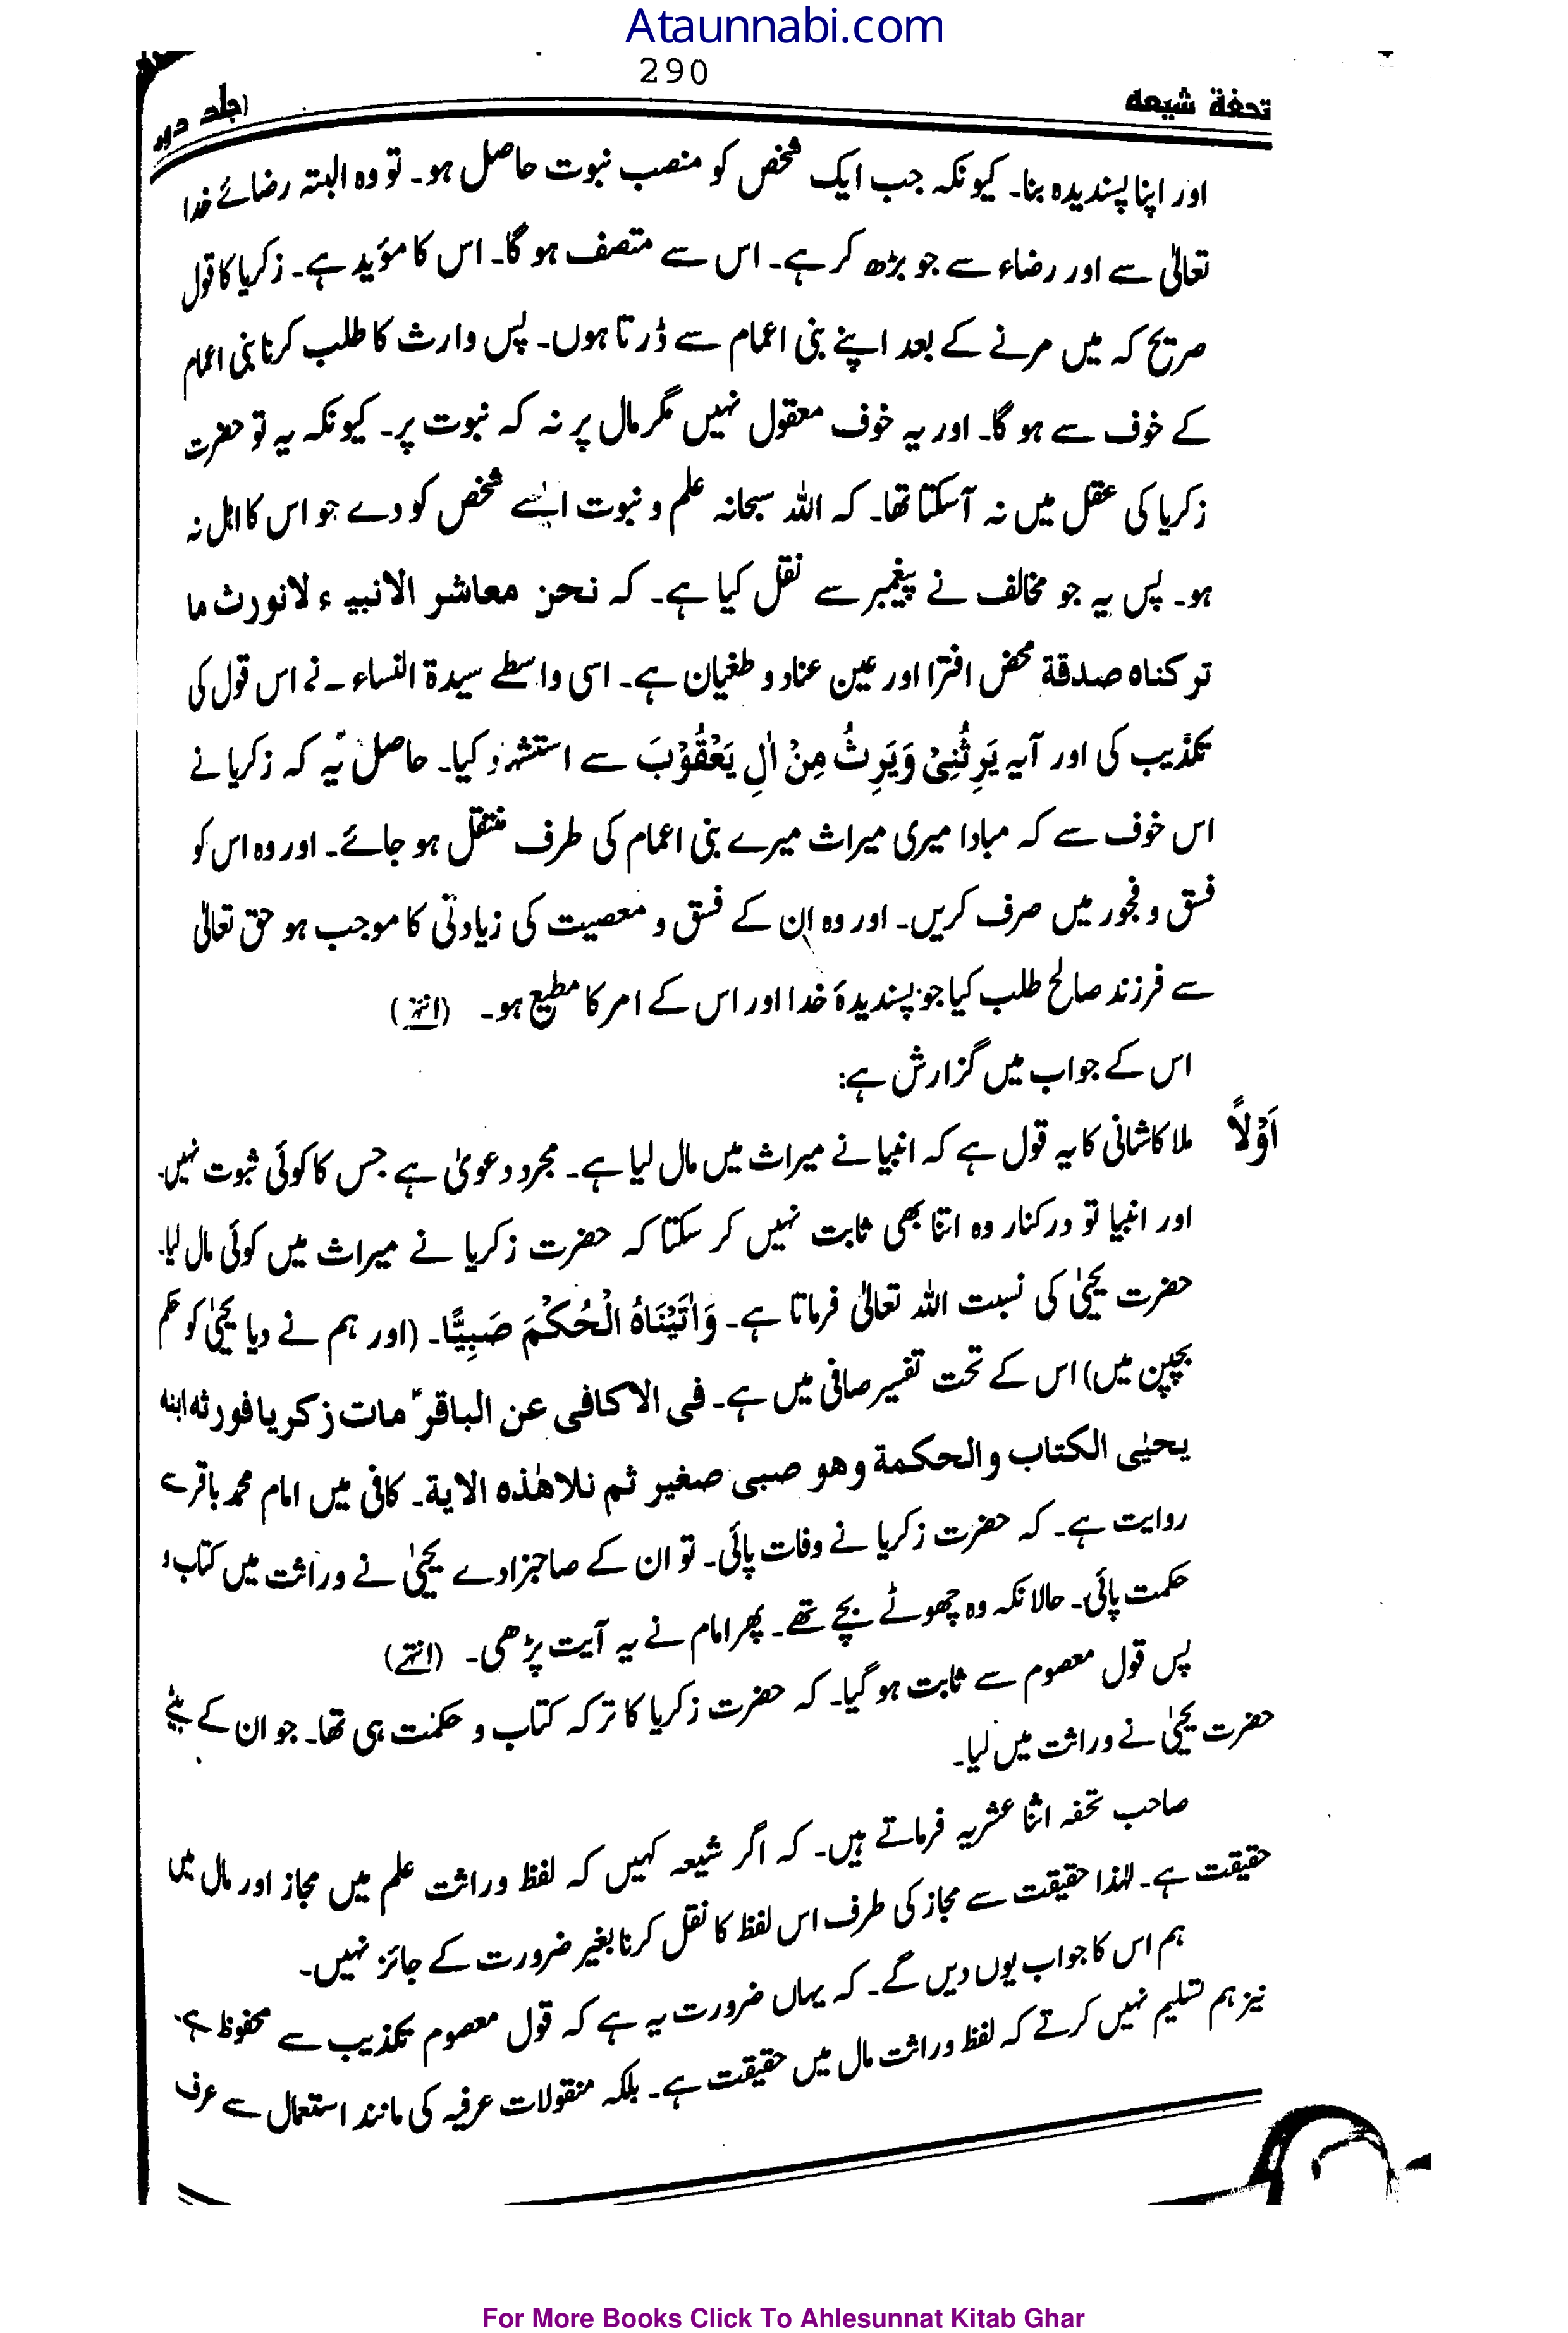 Ataunnabi.com
290
تحفۂ شیعہ
جلد دوم
اور اپنا پسندیدہ بنا۔ کیونکہ جب ایک شخص کو منصب نبوت حاصل ہو۔ تو وہ البتہ رضائے خدا
تعالیٰ سے اور رضاء سے جو بڑھ کر ہے۔ اس سے متصف ہو گا۔ اس کا مؤید ہے۔ زکریا کا قول
صریح کہ میں مرنے کے بعد اپنے بنی اعمام سے ڈرتا ہوں۔ پس وارث کا طلب کرنا بنی اعمام
کے خوف سے ہو گا۔ اور یہ خوف معقول نہیں مگر مال پر نہ کہ نبوت پر۔ کیونکہ یہ تو حضرت
زکریا کی عقل میں نہ آسکتا تھا۔ کہ اللہ سبحانہ علم و نبوت ایسے شخص کو دے جو اس کا اہل نہ
ہو۔ پس یہ جو مخالف نے پیغمبر سے نقل کیا ہے۔ کہ نحن معاشر الانبیء لانورث ما
ترکناہ صدقة محض افترا اور عین عناد و طغیان ہے۔ اسی واسطے سیدۃ النساء ۔ نے اس قول کی
تکذیب کی اور آیہ یَرِثُنِیْ وَیَرِثُ مِنْ اٰلِ یَعْقُوْبَ سے استشہد کیا۔ حاصل یہ کہ زکریا نے
اس خوف سے کہ مبادا میری میراث میرے بنی اعمام کی طرف منتقل ہو جائے۔ اور وہ اس کو
فسق و فجور میں صرف کریں۔ اور وہ ان کے فسق و معصیت کی زیادتی کا موجب ہو حق تعالیٰ
سے فرزند صالح طلب کیا جو پسندیدۂ خدا اور اس کے امر کا مطیع ہو۔ (انتہٰے)
اس کے جواب میں گزارش ہے:
اَوّلاً ملا کاشانی کا یہ قول ہے کہ انبیا نے میراث میں مال لیا ہے۔ مجرد دعویٰ ہے جس کا کوئی ثبوت نہیں۔
اور انبیا تو درکنار وہ اتنا بھی ثابت نہیں کر سکتا کہ حضرت زکریا نے میراث میں کوئی مال لیا۔
حضرت یحییٰ کی نسبت اللہ تعالیٰ فرماتا ہے۔ وَاٰتَیْنَاہُ الْحُکْمَ صَبِیًّا۔ (اور ہم نے دیا یحییٰ کو حکم
بچپن میں) اس کے تحت تفسیر صافی میں ہے۔ فی الاکافی عن الباقرؑ مات زکریا فورثہ ابنہ
یحیٰی الکتاب والحکمة وھو صبی صغیر ثم تلا ھٰذہ الایة۔ کافی میں امام محمد باقر سے
روایت ہے۔ کہ حضرت زکریا نے وفات پائی۔ تو ان کے صاحبزادے یحییٰ نے وراثت میں کتاب و
حکمت پائی۔ حالانکہ وہ چھوٹے بچے تھے۔ پھر امام نے یہ آیت پڑھی۔ (انتہٰے)
پس قول معصوم سے ثابت ہو گیا۔ کہ حضرت زکریا کا ترکہ کتاب و حکمت ہی تھا۔ جو ان کے بیٹے
حضرت یحییٰ نے وراثت میں لیا۔
صاحب تحفہ اثنا عشریہ فرماتے ہیں۔ کہ اگر شیعہ کہیں کہ لفظ وراثت علم میں مجاز اور مال میں
حقیقت ہے۔ لہٰذا حقیقت سے مجاز کی طرف اس لفظ کا نقل کرنا بغیر ضرورت کے جائز نہیں۔
ہم اس کا جواب یوں دیں گے۔ کہ یہاں ضرورت یہ ہے کہ قول معصوم تکذیب سے محفوظ ہے۔
نیز ہم تسلیم نہیں کرتے کہ لفظ وراثت مال میں حقیقت ہے۔ بلکہ منقولات عرفیہ کی مانند استعمال سے عرف
For More Books Click To Ahlesunnat Kitab Ghar